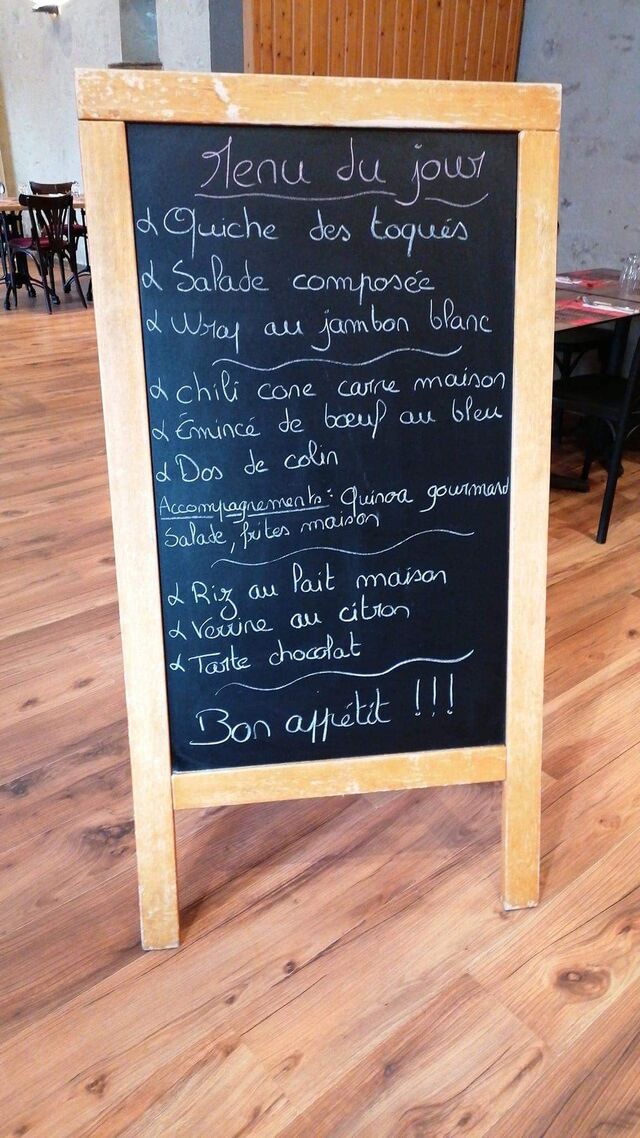 Menu du jour
Quiche des toqués
Salade composée
Wrap au jambon blanc
chili cone carre maison
Émincé de bœuf au bleu
Dos de colin
Accompagnements : Quinoa gourmand
Salade, frites maison
Riz au lait maison
Verrine au citron
Tarte chocolat
Bon appétit !!!